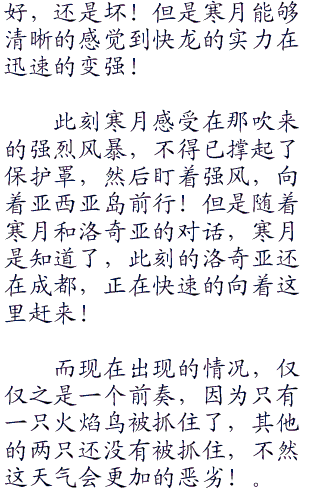 好，还是坏！但是寒月能够
清晰的感觉到快龙的实力在
迅速的变强！
此刻寒月感受在那吹来
的强烈风暴，不得已撑起了
保护罩，然后盯着强风，向
着亚西亚岛前行！但是随着
寒月和洛奇亚的对话，寒月
是知道了，此刻的洛奇亚还
在成都，正在快速的向着这
里赶来！
而现在出现的情况，仅
仅之是一个前奏，因为只有
一只火焰鸟被抓住了，其他
的两只还没有被抓住，不然
这天气会更加的恶劣！。